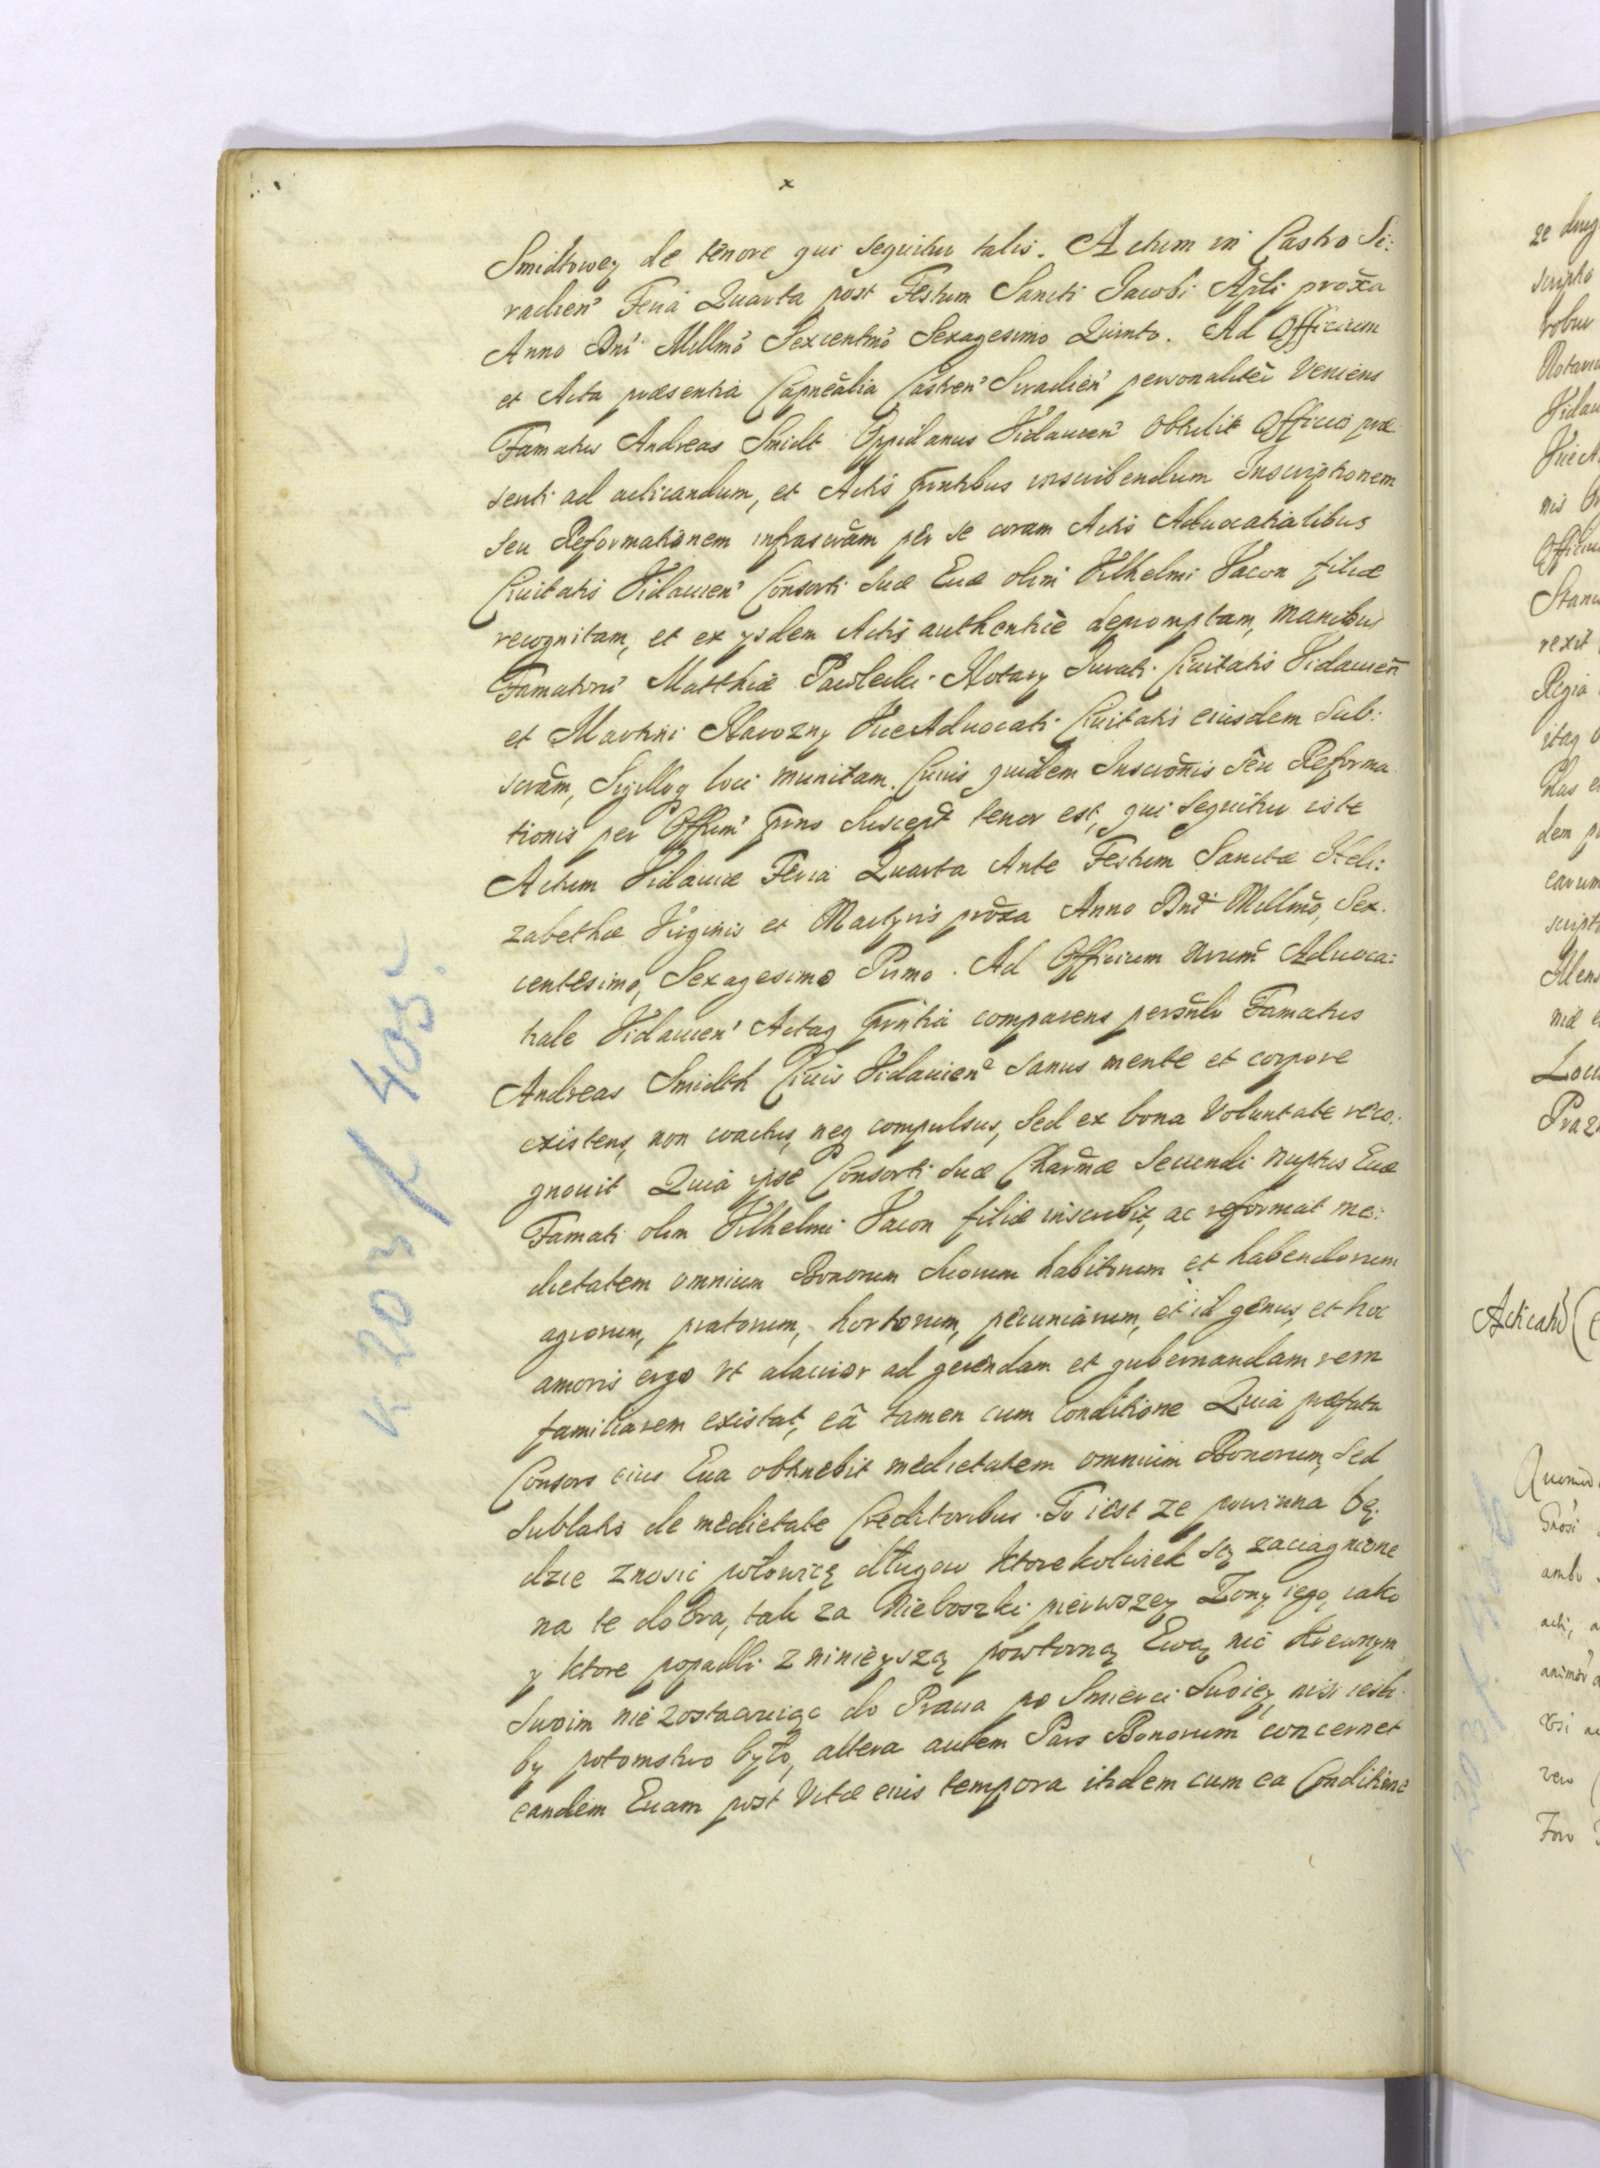 x
Smidtowey de tenore qui sequitur talis. Actum in Castro Si:
radien̄ Feria Quarta post Festum Sancti Jacobi Apl̄i prox̄a
Anno Dn̄i Mill̄mo Sexcentmo Sexagesimo Quinto. Ad Officium
et Acta præsentia Capnēalia Castren̄ Siradien̄ personaliter veniens
Famatus Andreas Smidt Oppidanus Vidavien̄ obtulit Officio præ
senti ad acticandum, et Actis pn̄tibus inscribendum Inscriptionem
seu Reformationem infrascr̄am per se coram Actis Advocatialibus
Civitatis Vidavien̄ Consorti Suæ Evæ olim Vilhelmi Vacon filiæ
recognitam, et ex ysdem Actis authentice depromptam, manibus
Famatorū Matthiæ Pawlecki Notary Jurati Civitatis Vidavien̄
et Martini Narozny ViceAdvocati Civitatis eiusdem Sub:
scr̄am, Sigilloq loci munitam. Cuius quidem Inscrōnis seu Reforma
tionis per Offium pn̄s Suscept̄ tenor est, qui sequitur iste
Actum Vidaviæ Feria Quarta Ante Festum Sanctæ Heli:
zabethæ Virginis et Martyris prox̄a Anno Dn̄i Mill̄mo, Sex.
centesimo, Sexagesimo Primo. Ad Officium Advoca:
tiale Vidavien̄ Actaq pn̄tia comparens personlr Famatus
Andreas Smidth Civis Vidavien̄ Sanus mente et corpore
existens, non coactus, neq compulsus, Sed ex bona Voluntate reco:
gnovit Quia ipse Consorti Suæ Charmæ Secundi nuptus Evæ
Famati olim Vilhelmi Vacon filiæ inscribit, ac reformat me:
dietatem omnium Bonorum Suorum habitorum et habendorum
agrorum, pratorum, hortorum, pecuniarum, et id genus, et hoc
amoris ergo vt alacrior ad gerendam et gubernandam rem
familiarem existat, eâ tamen cum Conditione Quia præfata
Consors eius Eva obtinebit medietatem omnium Bonorum, Sed
Sublatis de medietate Creditoribus. To iest ze powinna bę:
dzie znosic połowicę długow ktorekolwiek są zaciągnione
na te dobra, tak za Nieboszki pierwszey Zony iego, iako
y ktore popadli z ninieyszą powtorną Ewą nic Krewnym
Swoim nie zostawuiąc do Prawa po Smierci Swoiey, nisi iesli.
by potomstwo było, altera autem Pars Bonorum concernet
eandem Evam post Vitæ eius tempora itidem cum ea Conditione
k 203 / 405
ze dług
scripto
Officiu
Stanis
rexit
Regia
dem
earum
script
Acticatio
ambo
vero